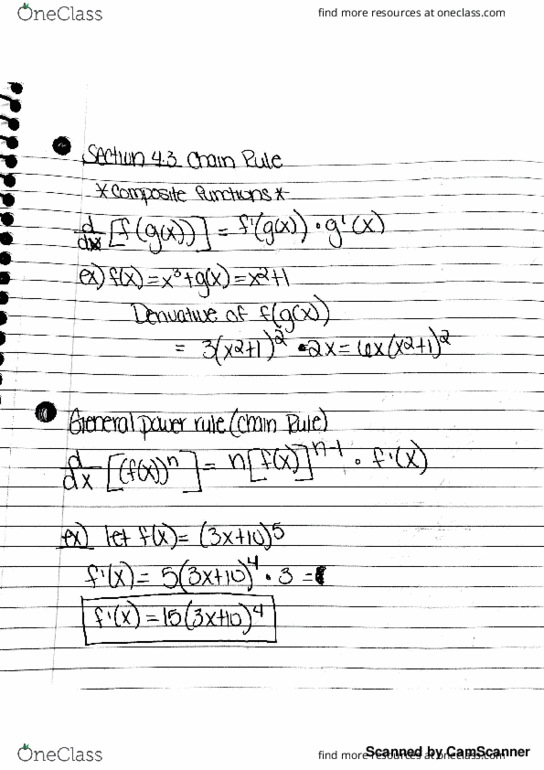 OneClass
find more resources at oneclass.com
Section 4.3 Chain Rule
*Composite Functions*
d/dx [f(g(x))] = f'(g(x)) • g'(x)
ex) f(x) = x³ + g(x) = x²+1
Derivative of f(g(x))
= 3(x²+1)² • 2x = 6x(x²+1)²
General power rule (Chain Rule)
d/dx [(f(x))ⁿ] = n[f(x)]ⁿ⁻¹ • f'(x)
ex) let f(x) = (3x+10)⁵
f'(x) = 5(3x+10)⁴ • 3 =
f'(x) = 15(3x+10)⁴
OneClass
find more resources at oneclass.com
Scanned by CamScanner